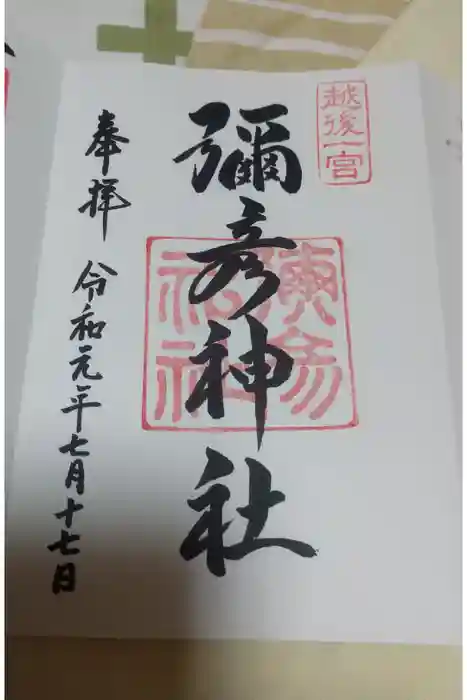 越後一宮
彌彦神社
奉拝
令和元年七月十七日